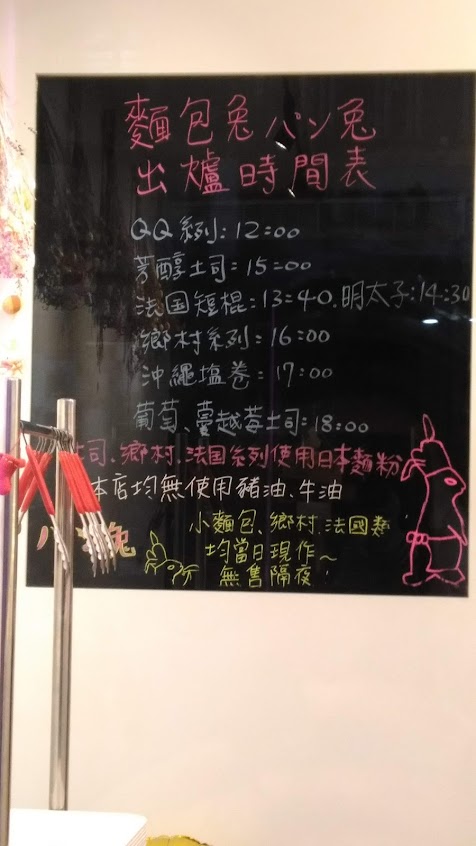 麵包兔パン兔
出爐時間表
QQ系列:12:00
芳醇土司:15:00
法国短棍:13:40.明太子:14:30
鄉村系列:16:00
沖繩塩卷:17:00
葡萄、蔓越莓土司:18:00
土司、鄉村、法国系列使用日本麵粉
本店均無使用豬油、牛油
小麵包、鄉村、法國類
均當日現作~
無售隔夜!
パン兔